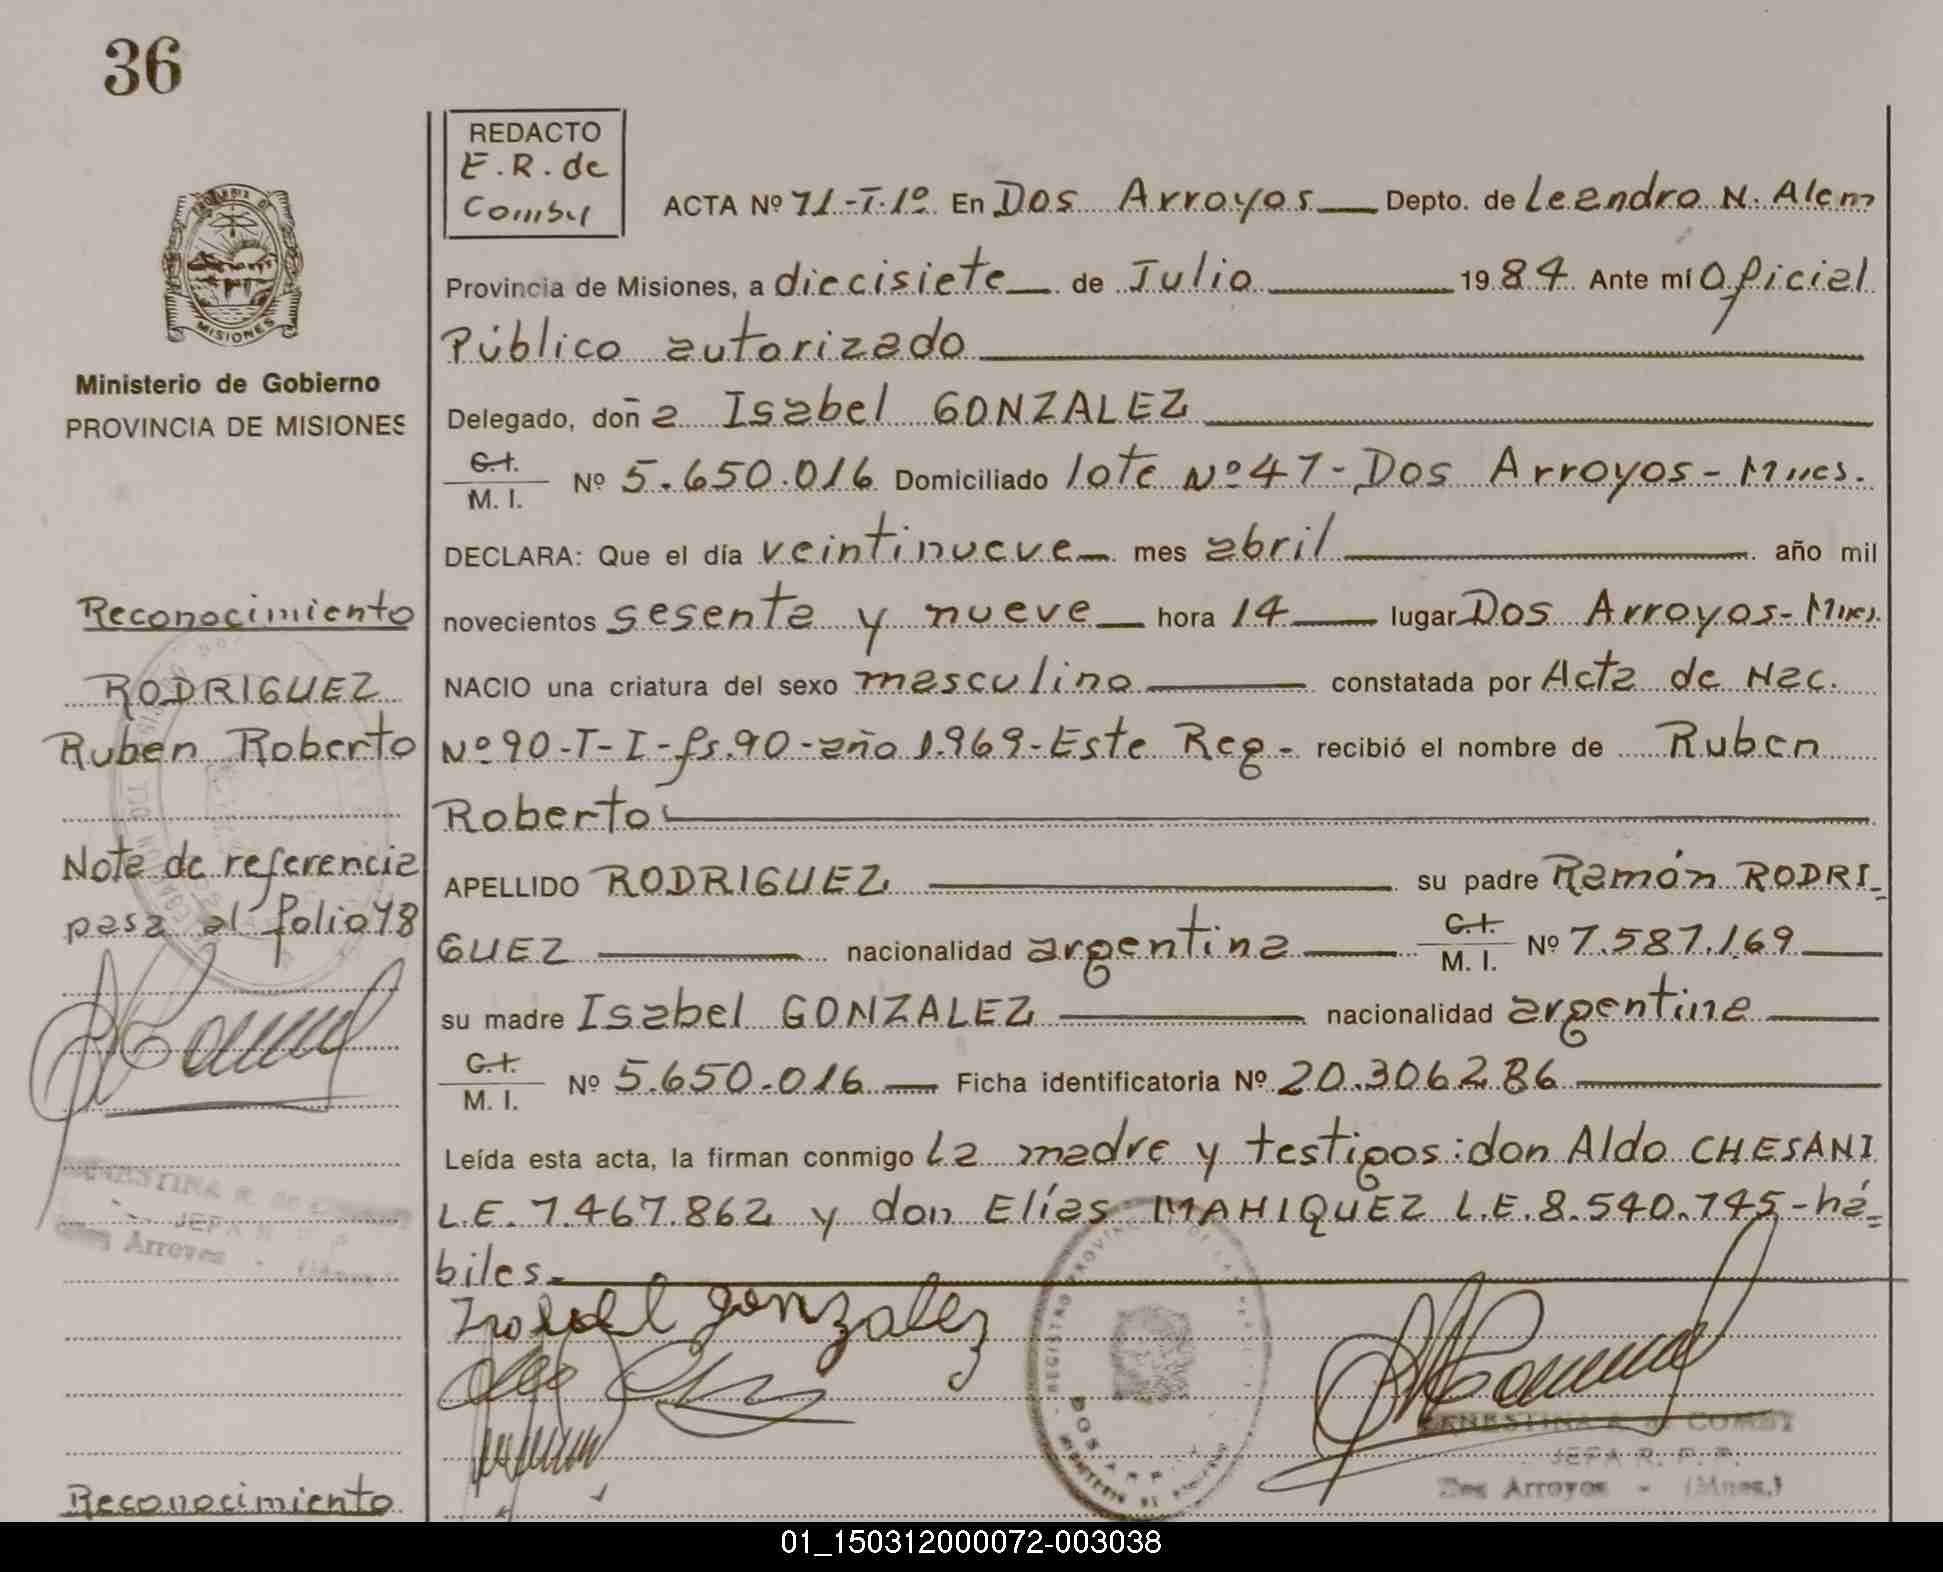 36
REDACTO
E.R. de
Comby
ACTA Nº 71-T.1º En Dos Arroyos Depto. de Leandro N. Alem
Provincia de Misiones, a diecisiete de Julio 1984 Ante mí Oficial
Público autorizado
MISIONES
Ministerio de Gobierno
PROVINCIA DE MISIONES
Delegado, doña Isabel GONZALEZ
C.I.
M. I. Nº 5.650.016 Domiciliado lote Nº 47-Dos Arroyos-Mnes.
DECLARA: Que el día veintinueve mes abril año mil
novecientos sesenta y nueve hora 14 lugar Dos Arroyos-Mnes.
NACIO una criatura del sexo masculino constatada por Acta de Nac.
Nº 90-T-I-fs.90-año 1.969-Este Reg- recibió el nombre de Ruben
Roberto
APELLIDO RODRIGUEZ su padre Ramón RODRI-
GUEZ nacionalidad argentina C.I. M. I. Nº 7.587.169
su madre Isabel GONZALEZ nacionalidad argentina
C.I.
M. I. Nº 5.650.016 Ficha identificatoria Nº 20.306286
Leída esta acta, la firman conmigo la madre y testigos: don Aldo CHESANI
L.E. 7.467.862 y don Elías MAHIQUEZ L.E. 8.540.745-há=
biles.
Isabel gonzalez
ERNESTINA R. de COMBY
JEFA R. P. P.
Dos Arroyos - (Mnes.)
Reconocimiento
RODRIGUEZ
Ruben Roberto
Nota de referencia
pasa al folio 48
ERNESTINA R. de COMBY
JEFA R. P. P.
Dos Arroyos - (Mnes.)
Reconocimiento
01_150312000072-003038